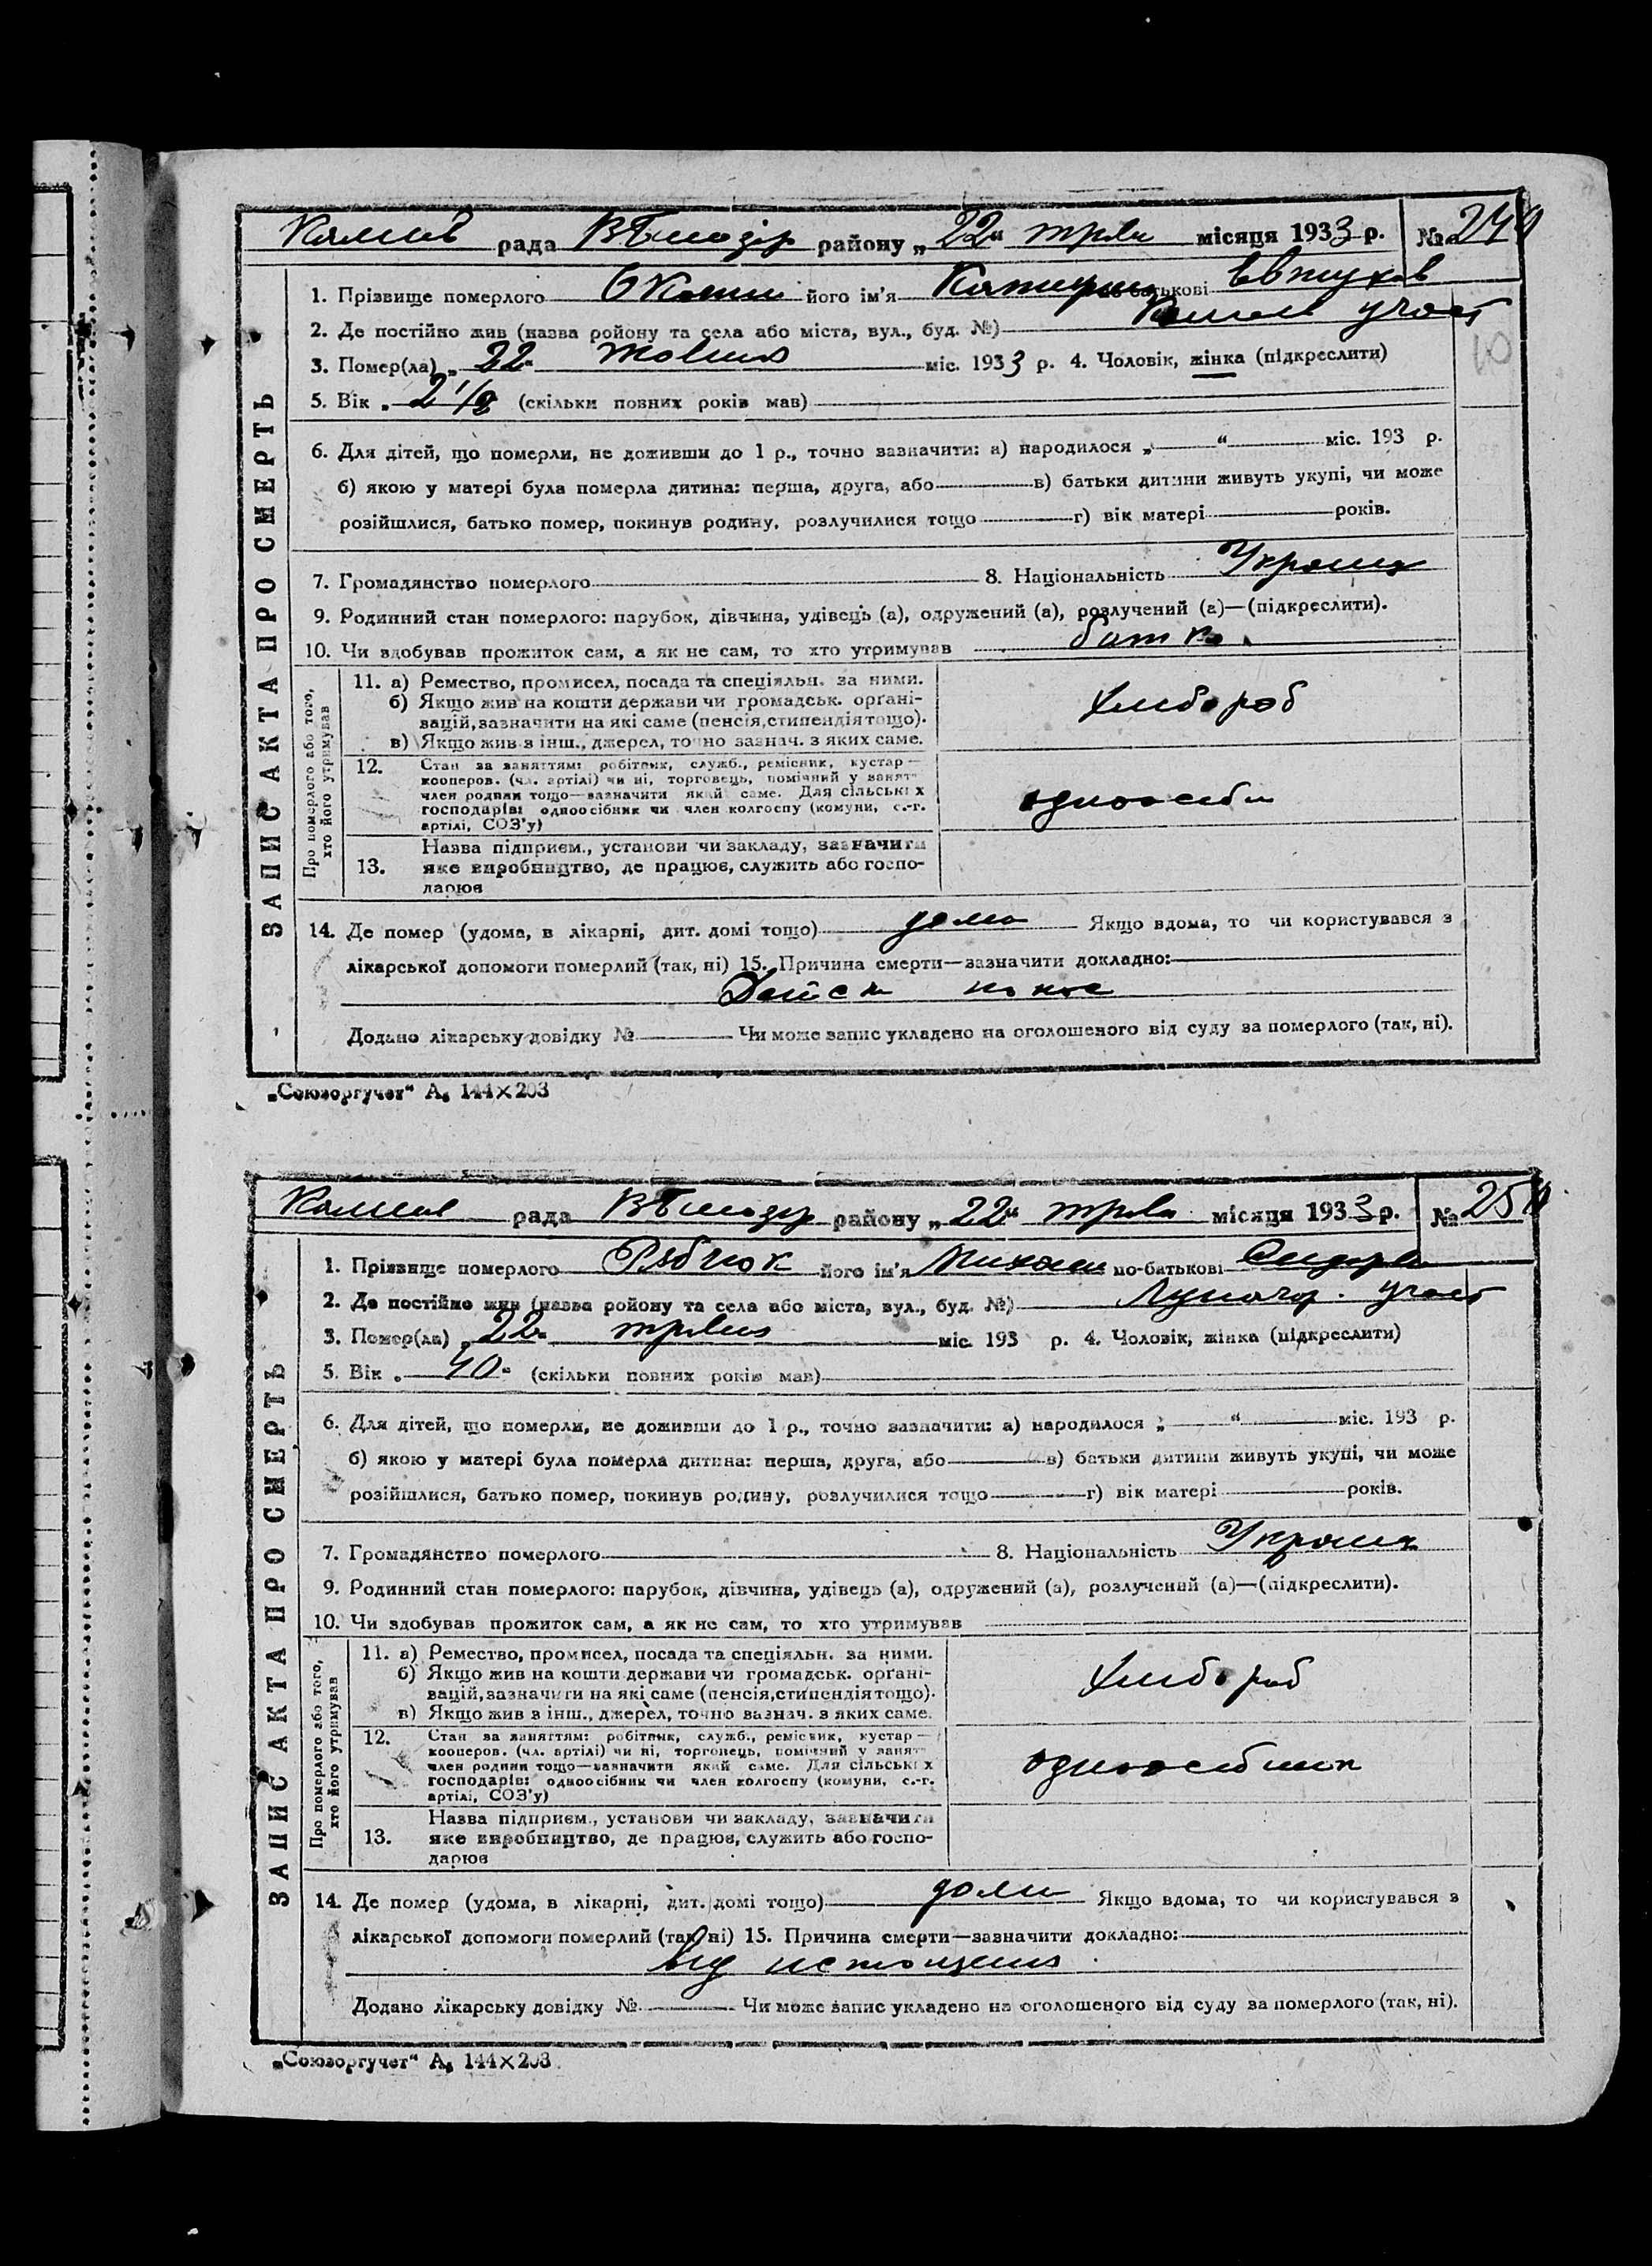 рада В Білозір району „22“ трав місяця 1933 р. №
ЗАПИС АКТА ПРО СМЕРТЬ
1. Прізвище померлого його ім'я Катерина по батькові Євтухов
2. Де постійно жив (назва ройону та села або міста, вул., буд. №) участ
3. Помер(ла) „22“ міс. 1933 р. 4. Чоловік, жінка (підкреслити)
5. Вік „2 1/2 (скільки повних років мав)
6. Для дітей, що померли, не доживши до 1 р., точно зазначити: а) народилося „ “ міс. 193 р.
б) якою у матері була померла дитина: перша, друга, або в) батьки дитини живуть укупі, чи може
розійшлися, батько помер, покинув родину, розлучилися тощо г) вік матері років.
7. Громадянство померлого 8. Національність Україн
9. Родинний стан померлого: парубок, дівчина, удівець (а), одружений (а), розлучений (а)—(підкреслити).
10. Чи здобував прожиток сам, а як не сам, то хто утримував батько
Про померлого або того, хто його утримував
11. а) Ремество, промисел, посада та спеціяльн. за ними.
б) Якщо жив на кошти держави чи громадськ. орґані-
зацій, зазначити на які саме (пенсія, стипендія тощо).
в) Якщо жив з інш., джерел, точно зазнач. з яких саме.
хлибороб
12. Стан за заняттям: робітник, служб., ремісник, кустар—
кооперов. (чл. артілі) чи ні, торговець, помічний у занят.
член родини тощо—зазначити який саме. Для сільських
господарів: одноосібник чи член колгоспу (комуни, с.-г.
артілі, СОЗ'у)
одноосібн
13. Назва підприєм., установи чи закладу, зазначити
яке виробництво, де працює, служить або госпо-
дарює
14. Де помер (удома, в лікарні, дит. домі тощо) дома Якщо вдома, то чи користувався з
лікарської допомоги померлий (так, ні) 15. Причина смерти—зазначити докладно:
Дитск понос
Додано лікарську довідку № Чи може запис укладено на оголошеного від суду за померлого (так, ні).
„Союзоргучет“ А₆ 144×203
рада В Білозір району „22“ трав місяця 1933 р. № 25
ЗАПИС АКТА ПРО СМЕРТЬ
1. Прізвище померлого Рябчюк його ім'я Михайло по-батькові Сидоров
2. Де постійно жив (назва ройону та села або міста, вул., буд. №) Луначар. участ
3. Помер(ла) „22“ травня міс. 193 р. 4. Чоловік, жінка (підкреслити)
5. Вік „40“ (скільки повних років мав)
6. Для дітей, що померли, не доживши до 1 р., точно зазначити: а) народилося „ “ міс. 193 р.
б) якою у матері була померла дитина: перша, друга, або в) батьки дитини живуть укупі, чи може
розійшлися, батько помер, покинув родину, розлучилися тощо г) вік матері років.
7. Громадянство померлого 8. Національність Україн
9. Родинний стан померлого: парубок, дівчина, удівець (а), одружений (а), розлучений (а)—(підкреслити).
10. Чи здобував прожиток сам, а як не сам, то хто утримував
Про померлого або того, хто його утримував
11. а) Ремество, промисел, посада та спеціяльн. за ними.
б) Якщо жив на кошти держави чи громадськ. орґані-
зацій, зазначити на які саме (пенсія, стипендія тощо).
в) Якщо жив з інш., джерел, точно зазнач. з яких саме.
хлибороб
12. Стан за заняттям: робітник, служб., ремісник, кустар—
кооперов. (чл. артілі) чи ні, торговець, помічний у занят.
член родини тощо—зазначити який саме. Для сільських
господарів: одноосібник чи член колгоспу (комуни, с.-г.
артілі, СОЗ'у)
одноосібник
13. Назва підприєм., установи чи закладу, зазначити
яке виробництво, де працює, служить або госпо-
дарює
14. Де помер (удома, в лікарні, дит. домі тощо) дома Якщо вдома, то чи користувався з
лікарської допомоги померлий (так, ні) 15. Причина смерти—зазначити докладно:
від истощения
Додано лікарську довідку № Чи може запис укладено на оголошеного від суду за померлого (так, ні).
„Союзоргучет“ А₆ 144×203